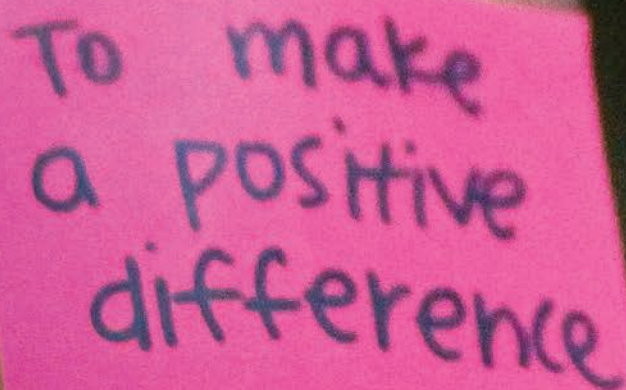 To make
a positive
difference